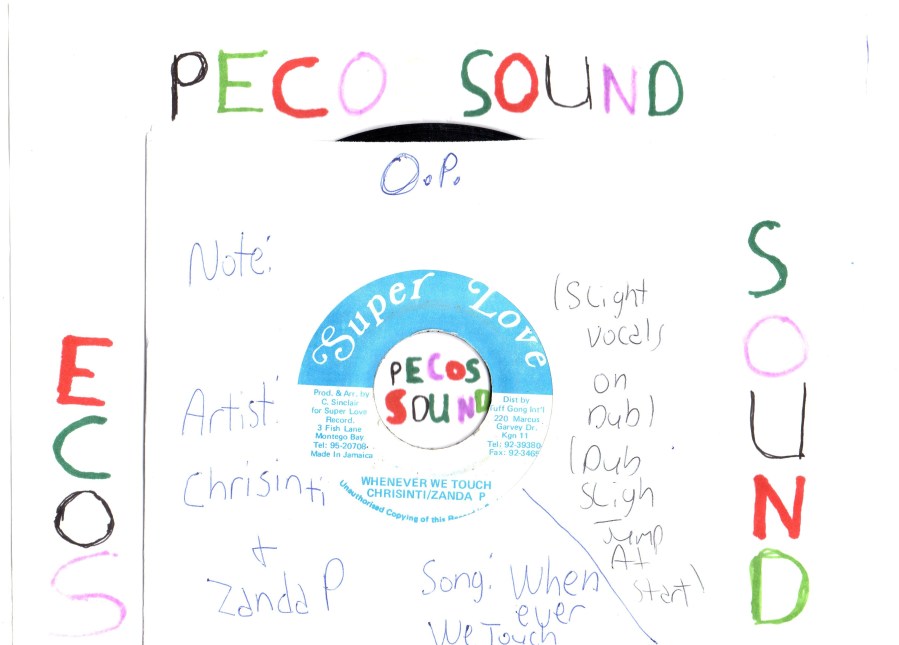 PECO SOUND
O.P.
Note:
Super Love
PECOS
SOUND
Prod. & Arr. by
C. Sinclair
for Super Love
Record.
3 Fish Lane
Montego Bay
Tel: 95-20708
Made In Jamaica
Dist by
Tuff Gong Int'l
220 Marcus
Garvey Dr.
Kgn 11
Tel: 92-39380
Fax: 92-3465
WHENEVER WE TOUCH
CHRISINTI/ZANDA P
Unauthorised Copying of this
Artist:
Chrisinti
+
Zanda P
Song: When
ever
We Touch
(Slight
vocals
on
Dub)
(Dub
sligh
Jump
At
start)
ECOS
SOUND